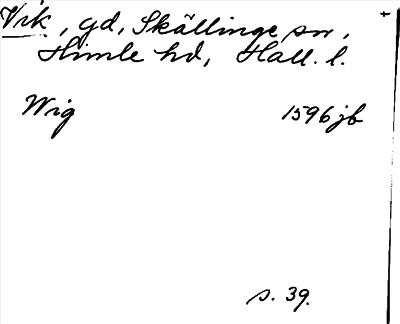 Vik, gd, Skällinge sn,
Himle hd, Hall. l.
Wig 1596 jb
s. 39.